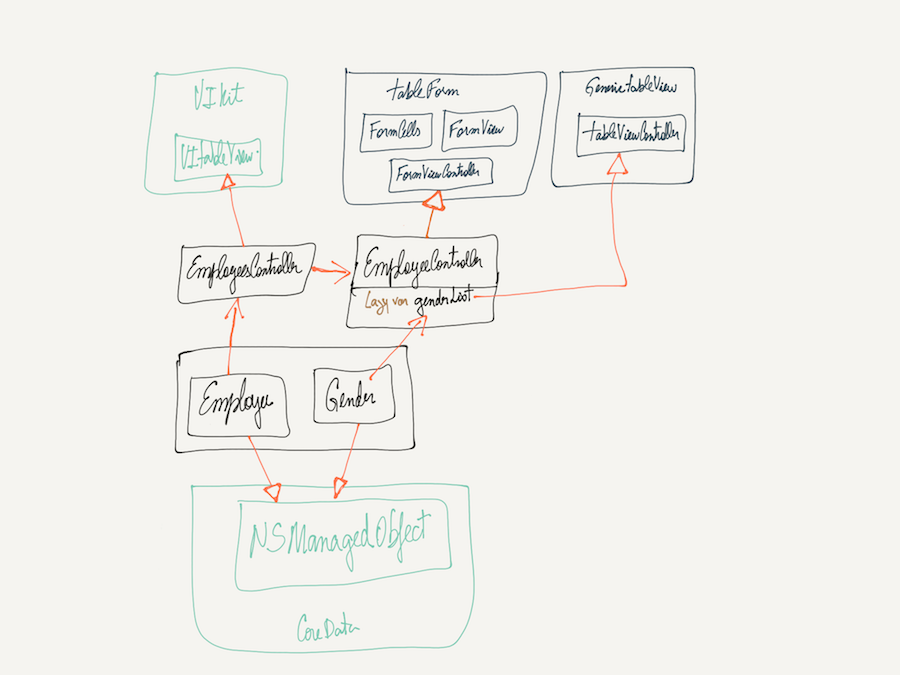 UIkit
UItableView
tableForm
FormCells
FormView
FormViewController
GenericTableView
tableViewController
EmployeesController
EmployeeController
Lazy var genderList
Employee
Gender
NSManagedObject
CoreData